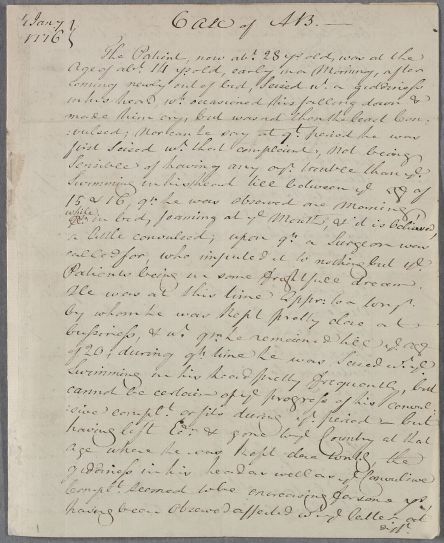 Jany
1776
Case of AB.
The Patient, now abt. 28 yrs old, was at the
age of abt. 14 yrs old, early in a Morning, after
coming newly out of bed, Seized wt. a giddiness
in his head wc. occasioned his falling down &
made him cry, but was not then the least Con
vulsed; nor can he say at qt. period he was
first Seized wt. that complaint, Not being
Sensible of having any oyr. trouble than ye
Swimming in his head till between ye age of
15 & 16, qn. he was observed one Morning
while in bed, foaming at ye Mouth, &
a little convulsed; upon qc. a Surgeon was
called for, who imputed it to nothing but ye
Patients being in some frightfull dream
He was at this time
by whom he was kept pretty close at
bussiness, & wt. qm. he remained till ye age
of 20: during qh. time he was Seized wt. ye
Swimming in his head pretty frequently, but
cannot be certain of ye progress of his convul
sive complt. or fits during yt. period — but
having left & gone to ye Country at that
age where he was kept the
giddiness in his head as well as ye Convulsive
Complt. Seemed to be encreasing
having been Observed affected wt. ye latter, at